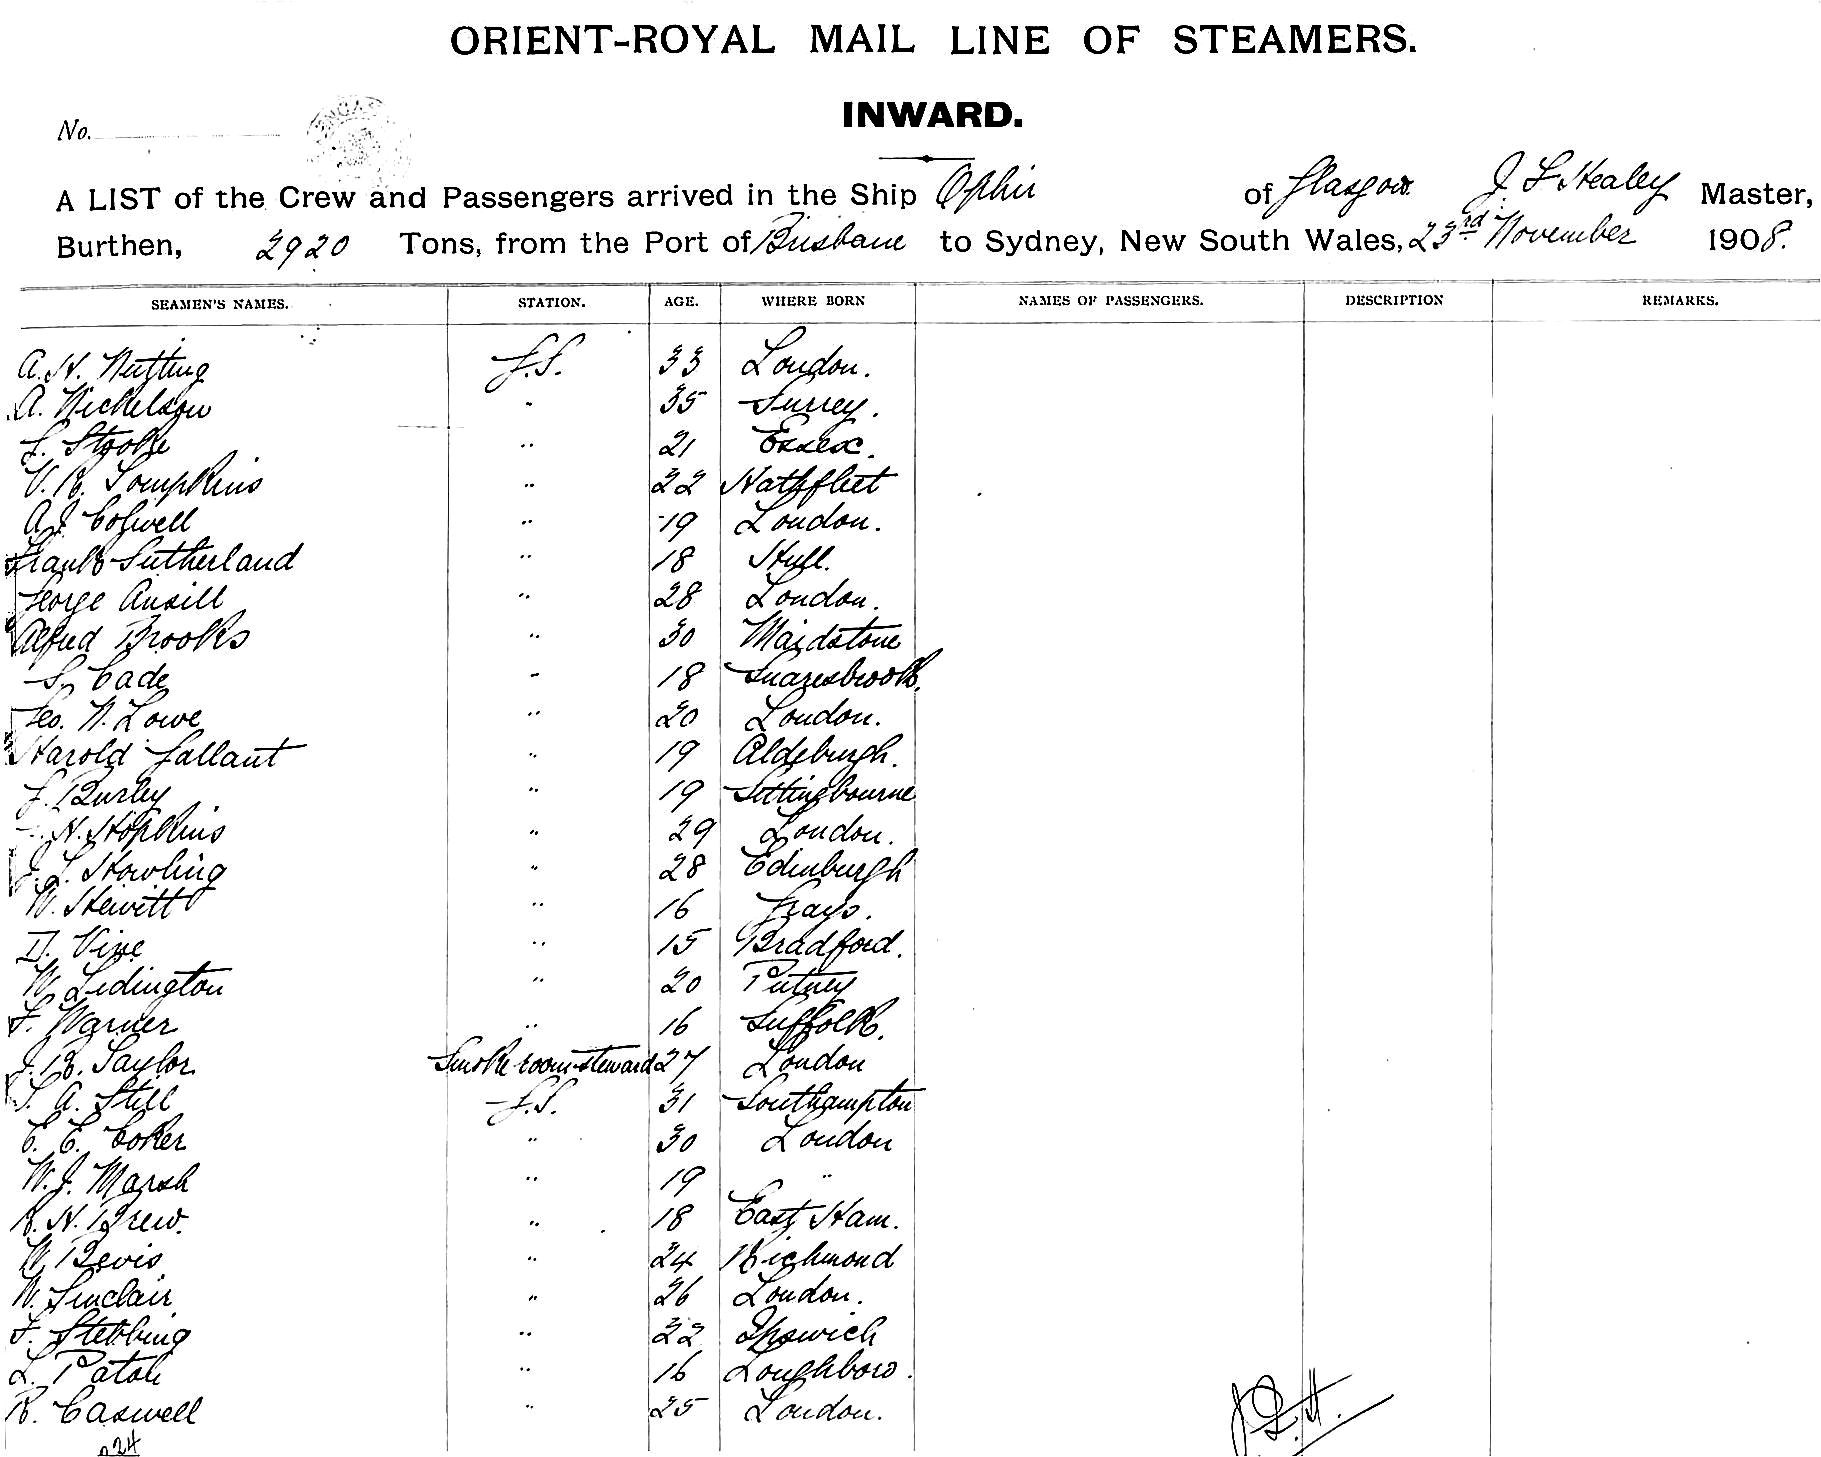 ORIENT-ROYAL MAIL LINE OF STEAMERS.
INWARD.
No.
A LIST of the Crew and Passengers arrived in the Ship Ophir of Glasgow J L Healey Master,
Burthen, 2920 Tons, from the Port of Brisbane to Sydney, New South Wales, 23rd November 1908.
SEAMEN'S NAMES. STATION. AGE. WHERE BORN NAMES OF PASSENGERS. DESCRIPTION REMARKS.
A. H. Nutting F.S. 33 London.
A. Nickelson " 35 Surrey.
" 21 Essex.
V. R. Tompkins " 22 
A. J. " 19 London.
Frank Sutherland " 18 Hull.
George Ansill " 28 London.
Alfred Brooks " 30 Maidstone
S. Cade " 18 Snaresbrook.
Geo. W. Lowe " 20 London.
Harold Gallant " 19 Aldeburgh.
F. Burley " 19 Sittingbourne
H. Hopkins " 29 London.
J. L. Howling " 28 Edinburgh
W. Hewitt " 16 Grays.
D. Vine " 15 Bradford.
W. Lidington " 20 Putney
F. Warner " 16 Suffolk.
J. R. Taylor Smoke room steward 27 London
A. Still F.S. 31 Southampton
C. E. Coker " 30 London
W. J. Marsh " 19 "
R. H. Brew. " 18 East Ham.
W. Bevis " 24 Richmond
W. Sinclair " 26 London.
F. Stebbing " 22 Ipswich
L. " 16 Loughboro.
R. Caswell " 25 London.
J.L.H.
24